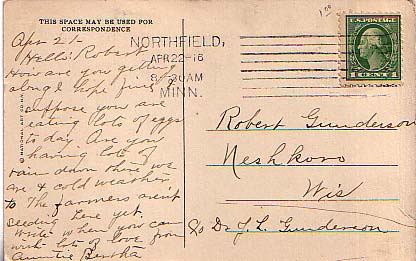 THIS SPACE MAY BE USED FOR
CORRESPONDENCE
Apr 21-
Hello Robert
How are you getting
along I hope fine I
suppose you are
eating lots of eggs
to day. Are you
having lots of
rain down there we
are & cold weather
to The farmers arn't
seeding here yet.
Write when you can
with lots of love from
Auntie Bertha
NORTHFIELD,
APR 22-16
8-30AM
MINN.
U.S. POSTAGE
1 CENT 1
Robert Gunderson
Neshkoro
Wis
c/o Dr J. L. Gunderson